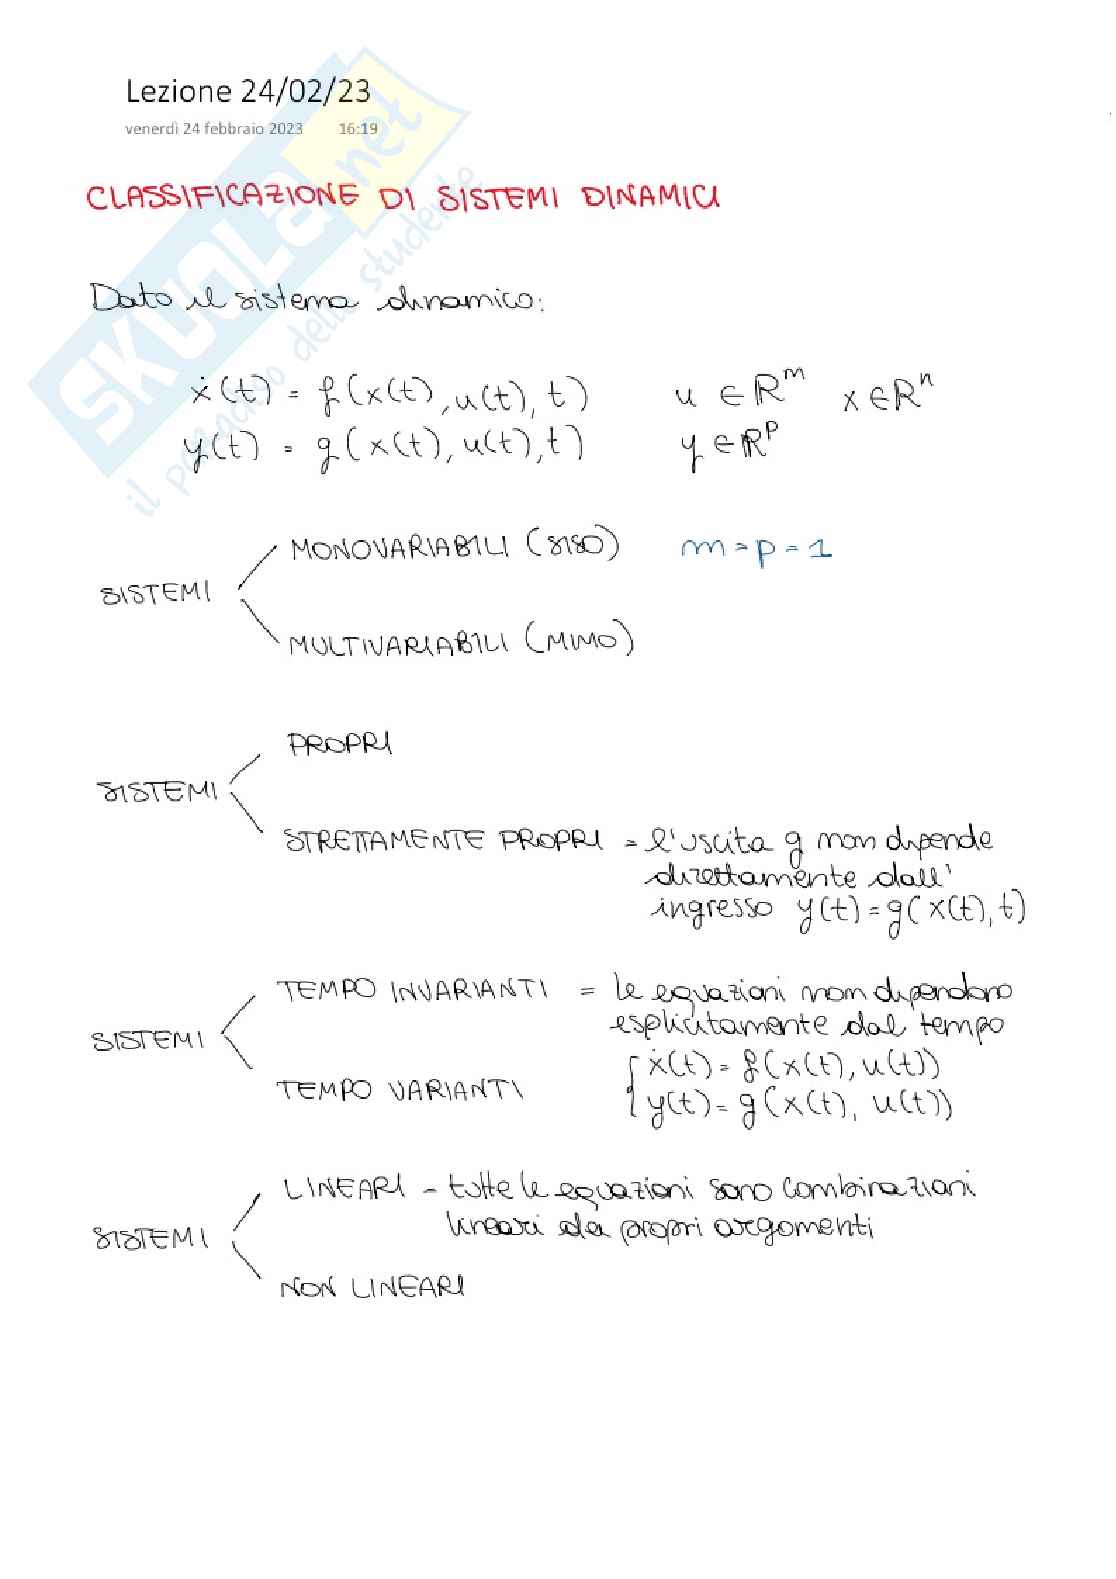 Lezione 24/02/23
venerdì 24 febbraio 2023 16:19
CLASSIFICAZIONE DI SISTEMI DINAMICI
Dato il sistema dinamico:
ẋ(t) = f(x(t), u(t), t) u ∈ ℝᵐ x ∈ ℝⁿ
y(t) = g(x(t), u(t), t) y ∈ ℝᵖ
MONOVARIABILI (SISO) m = p = 1
SISTEMI
MULTIVARIABILI (MIMO)
PROPRI
SISTEMI
STRETTAMENTE PROPRI = l'uscita g non dipende
direttamente dall'
ingresso y(t) = g(x(t), t)
TEMPO INVARIANTI = le equazioni non dipendono
esplicitamente dal tempo
SISTEMI
ẋ(t) = f(x(t), u(t))
TEMPO VARIANTI
y(t) = g(x(t), u(t))
LINEARI - tutte le equazioni sono combinazioni
lineari da propri argomenti
SISTEMI
NON LINEARI
SKUOLA.net
il paradiso dello studente